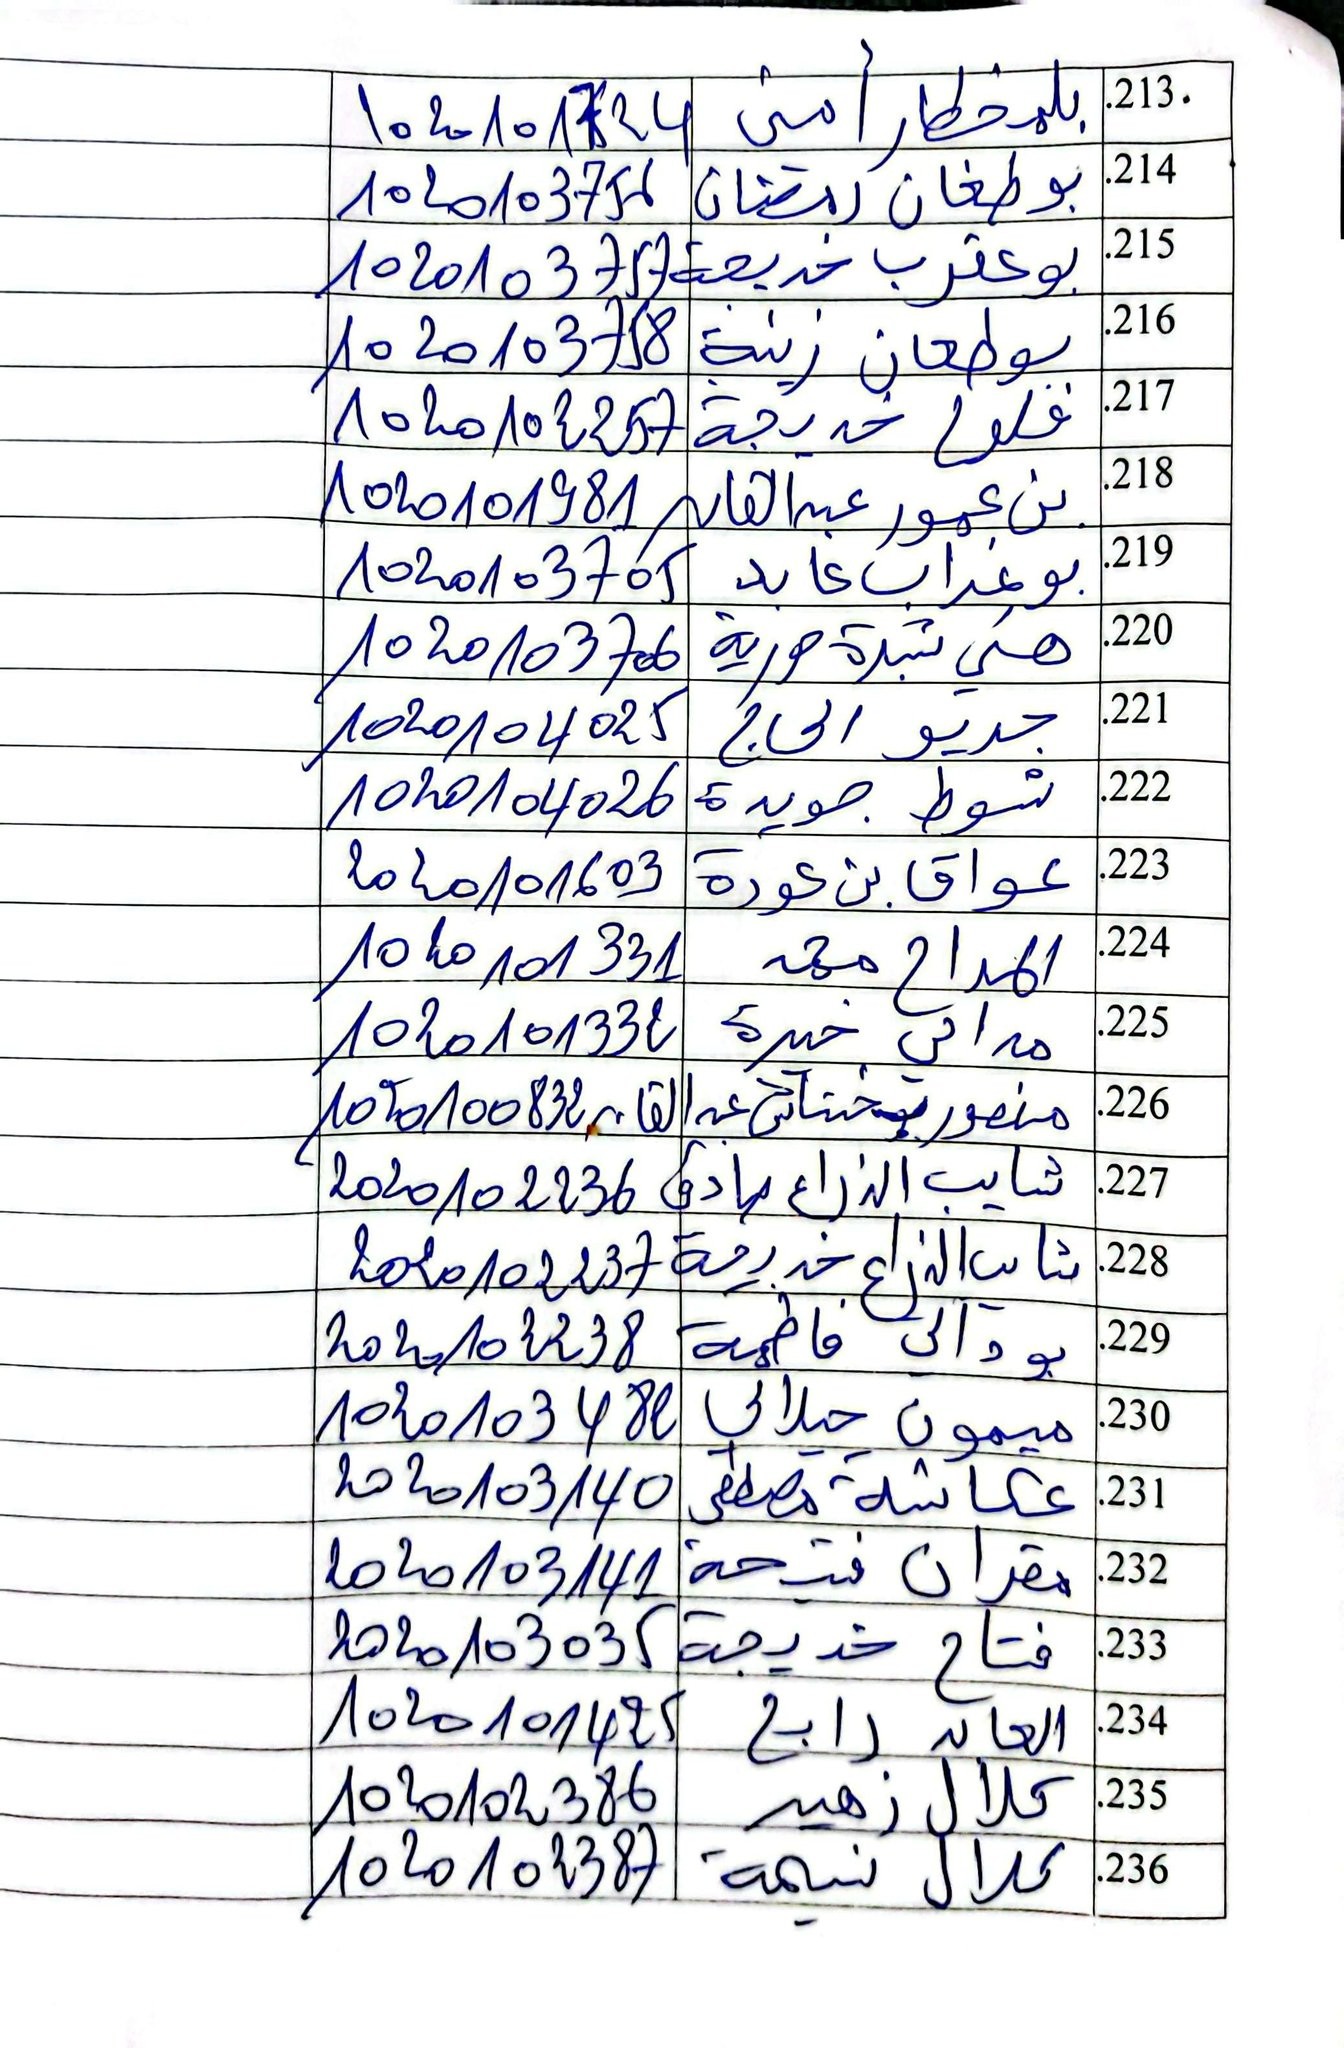 213. بلمخطار أمين
214. بوطغان رمضان 1020103756
215. بوعقرب خديجة 1020103757
216. بوطغان زينة 1020103758
217. فلوح خديجة 1020102257
218. بن عمور عبد القادر 1020101981
219. بوغداب عابد 1020103705
220. هني شبرة حورية 1020103706
221. جديو الحاج 1020104025
222. شوط جويدة 1020104026
223. عواق بن عودة 2020101603
224. المداح محمد 1020101331
225. مداني خيرة 1020101332
226. منصور عبد القادر 1020100832
227. شايب الذراع 2020102236
228. شايب الذراع خديجة 2020102237
229. بودالي فاطمة 2020102238
230. ميمون جيلالي 1020103482
231. عكاشة مصطفى 2020103140
232. مقران فتيحة 2020103141
233. فتاح خديجة 2020103035
234. العابد رابح 1020101425
235. كلال زهير 1020102386
236. كلال نسيمة 1020102387